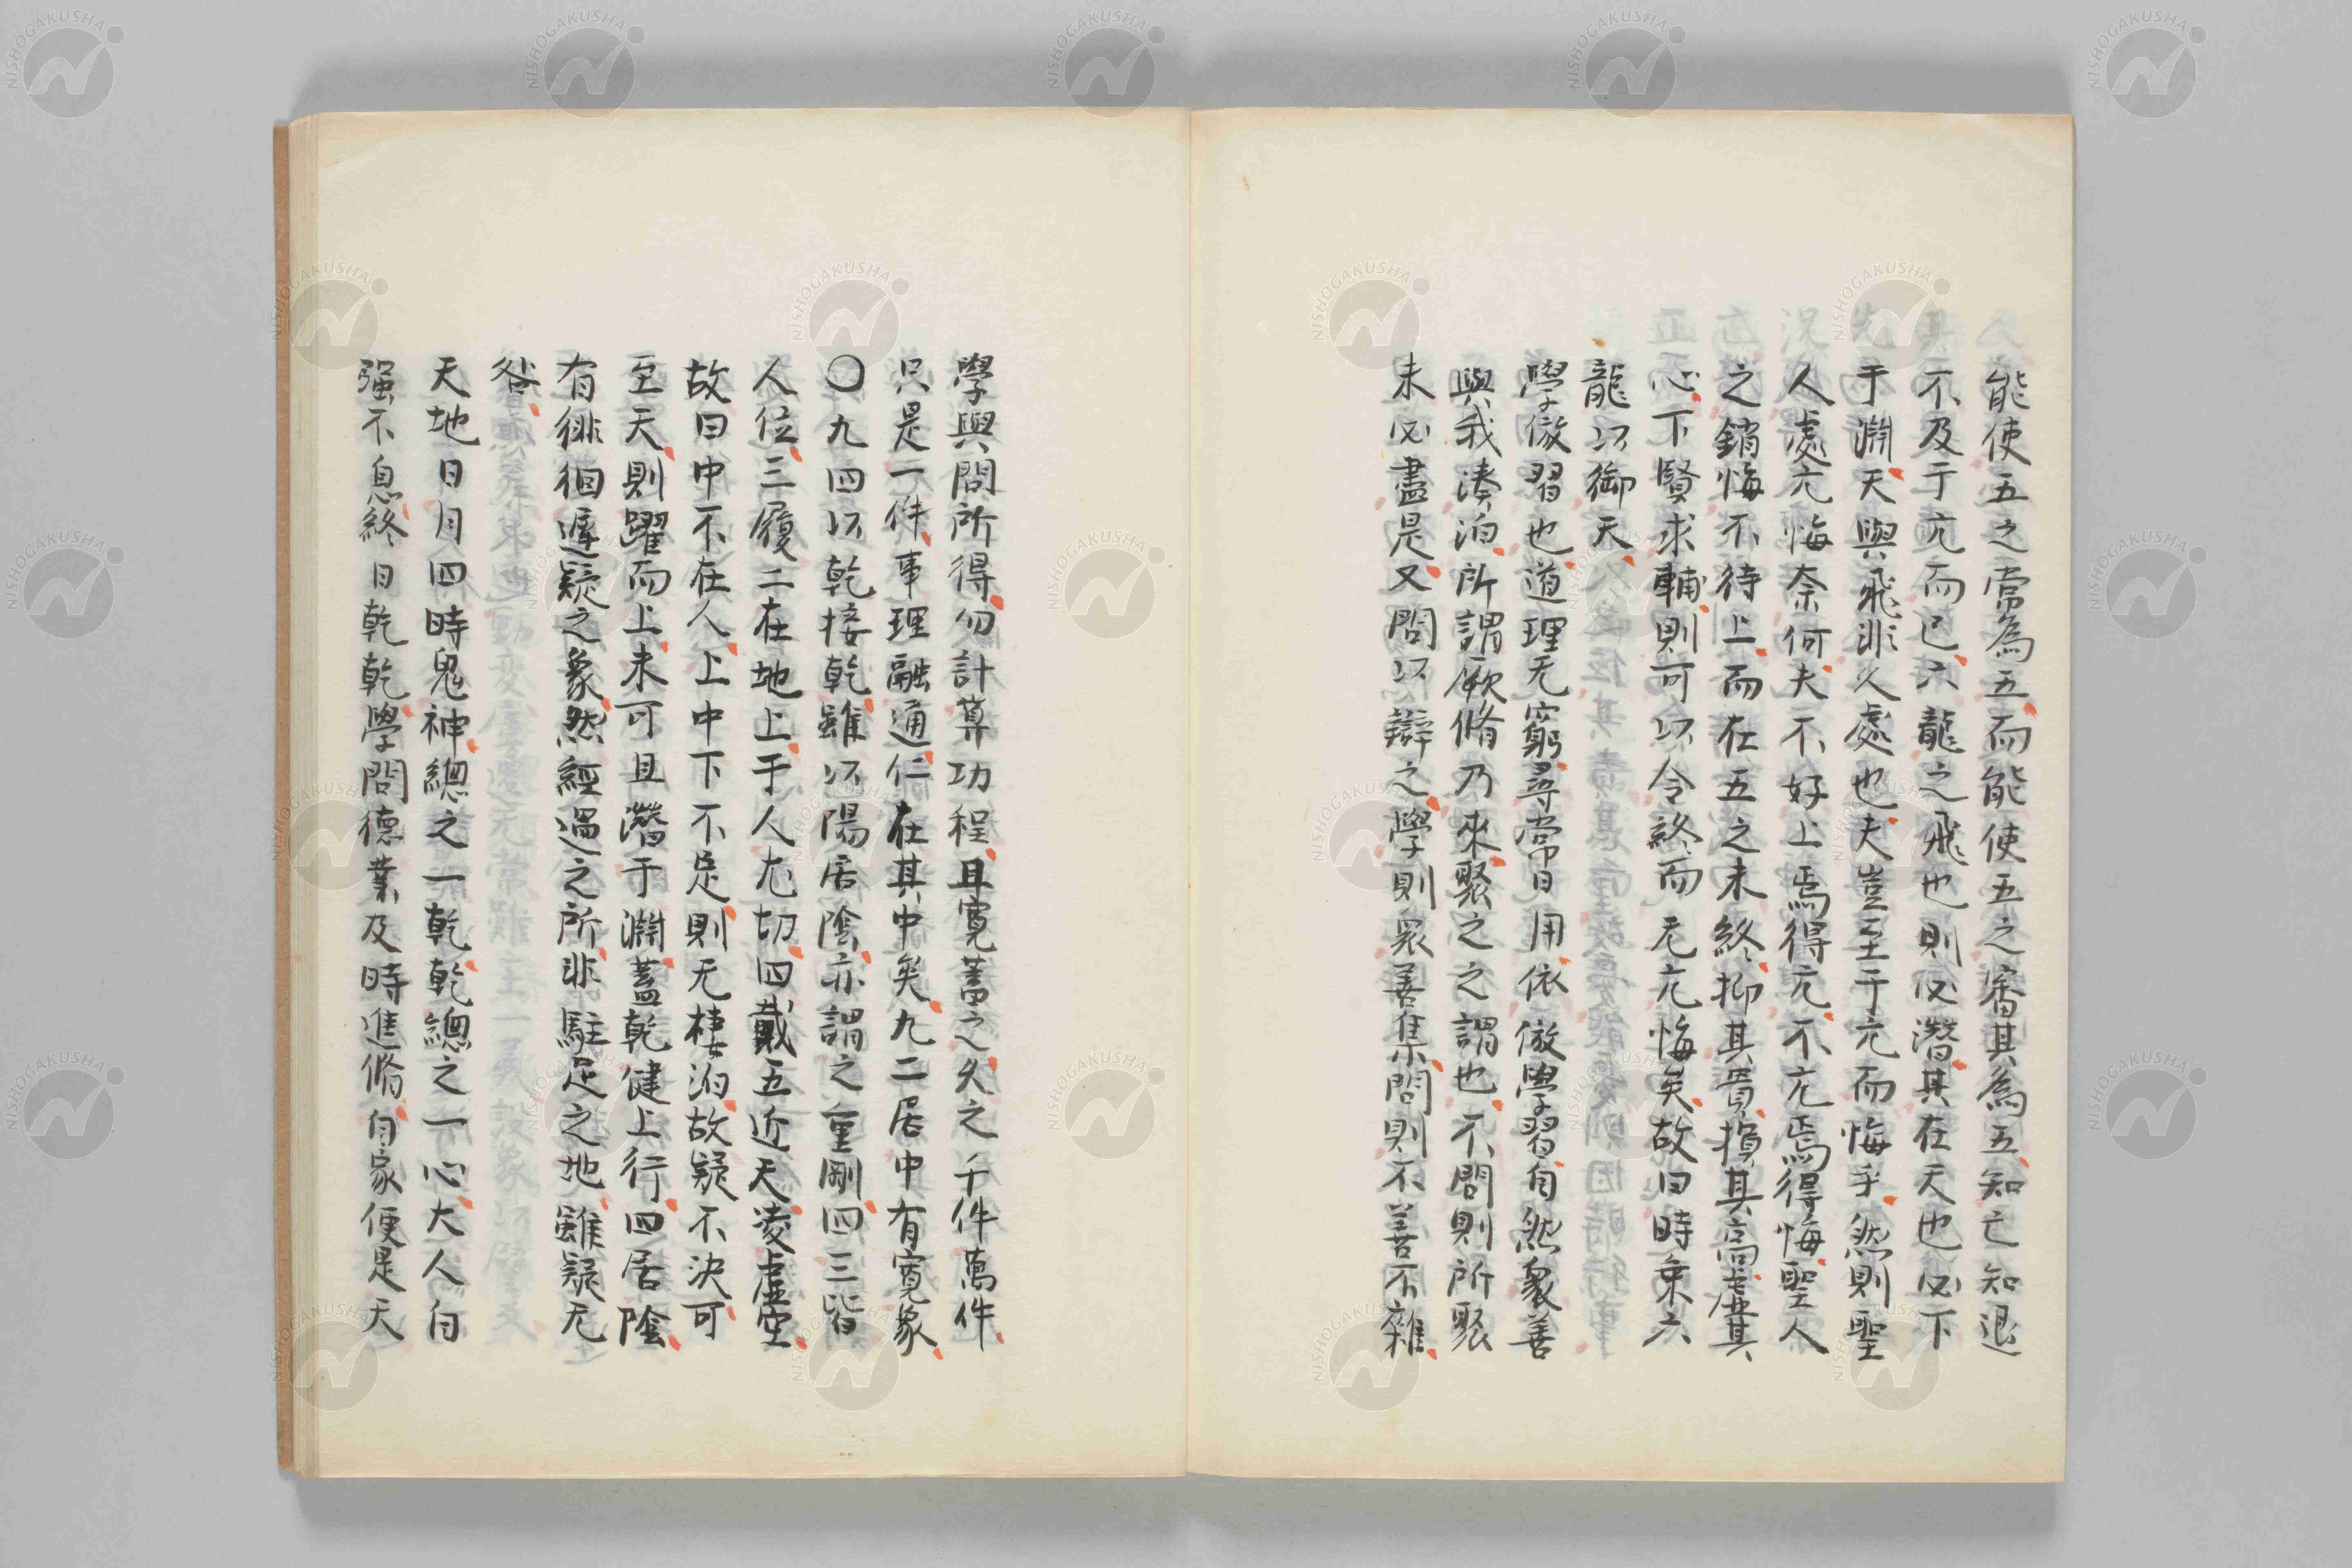 能使五之常為五而能使五之審其為五知亡知退
不及于亢而已六龍之飛也則必潛其在天也必下
于淵天與飛非久處也夫豈至于亢而悔乎然則聖
人處亢悔奈何夫不好上焉得亢不亢焉得悔聖人
之銷悔不待上而在五之未終抑其貴損其高虛其
心下賢求輔則可以令終而无亢悔矣故曰時乗六
龍以御天
學倣習也道理无窮尋常日用依倣學習自然衆善
與我湊泊所謂厥脩乃來聚之之謂也不問則所聚
未必盡是又問以辯之學則衆善集問則不善不雜
學與問所得勿計算功程且寬蓄之久之千件萬件
只是一件事理融通仁在其中矣九二居中有寬象
〇九四以乾接乾雖以陽居陰亦謂之重剛四三皆
人位三履二在地上于人尤切四戴五近天凌虛空
故曰中不在人上中下不足則无棲泊故疑不決可
至天則躍而上未可且潛于淵蓋乾健上行四居陰
有徘徊遲疑之象然經過之所非駐足之地雖疑无
咎
天地日月四時鬼神總之一乾乾總之一心大人自
强不息終日乾乾學問德業及時進脩自家便是天